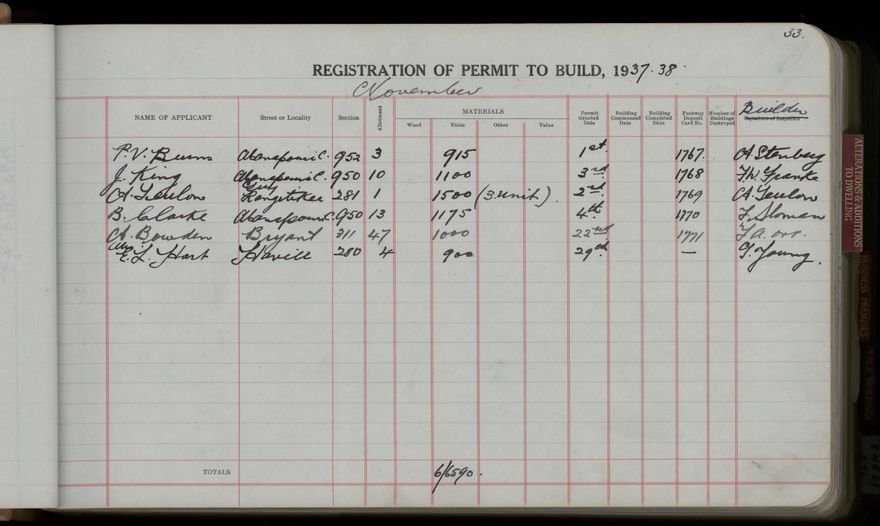 33.
REGISTRATION OF PERMIT TO BUILD, 1937-38
November
NAME OF APPLICANT Street or Locality Section Allotment MATERIALS Wood Value Other Value Permit Granted Date Building Commenced Date Building Completed Date Footway Deposit Card No. Number of Buildings Destroyed Signature of Inspector Builder
P.V. Burns 952 3 915 1st 1767. A Stenberg
J. King 950 10 1100 3rd 1768
281 1 1500 (3 unit). 2nd 1769
B. Clarke 950 13 1175 4th 1770 F. Sloman
A. Bowden Bryant 311 47 1000 22nd 1771
E. L. Hart Havill 280 4 900 29th — G. Young.
TOTALS 6/6590.
ALTERATIONS & ADDITIONS TO DWELLING
BUSINESS PREMISES